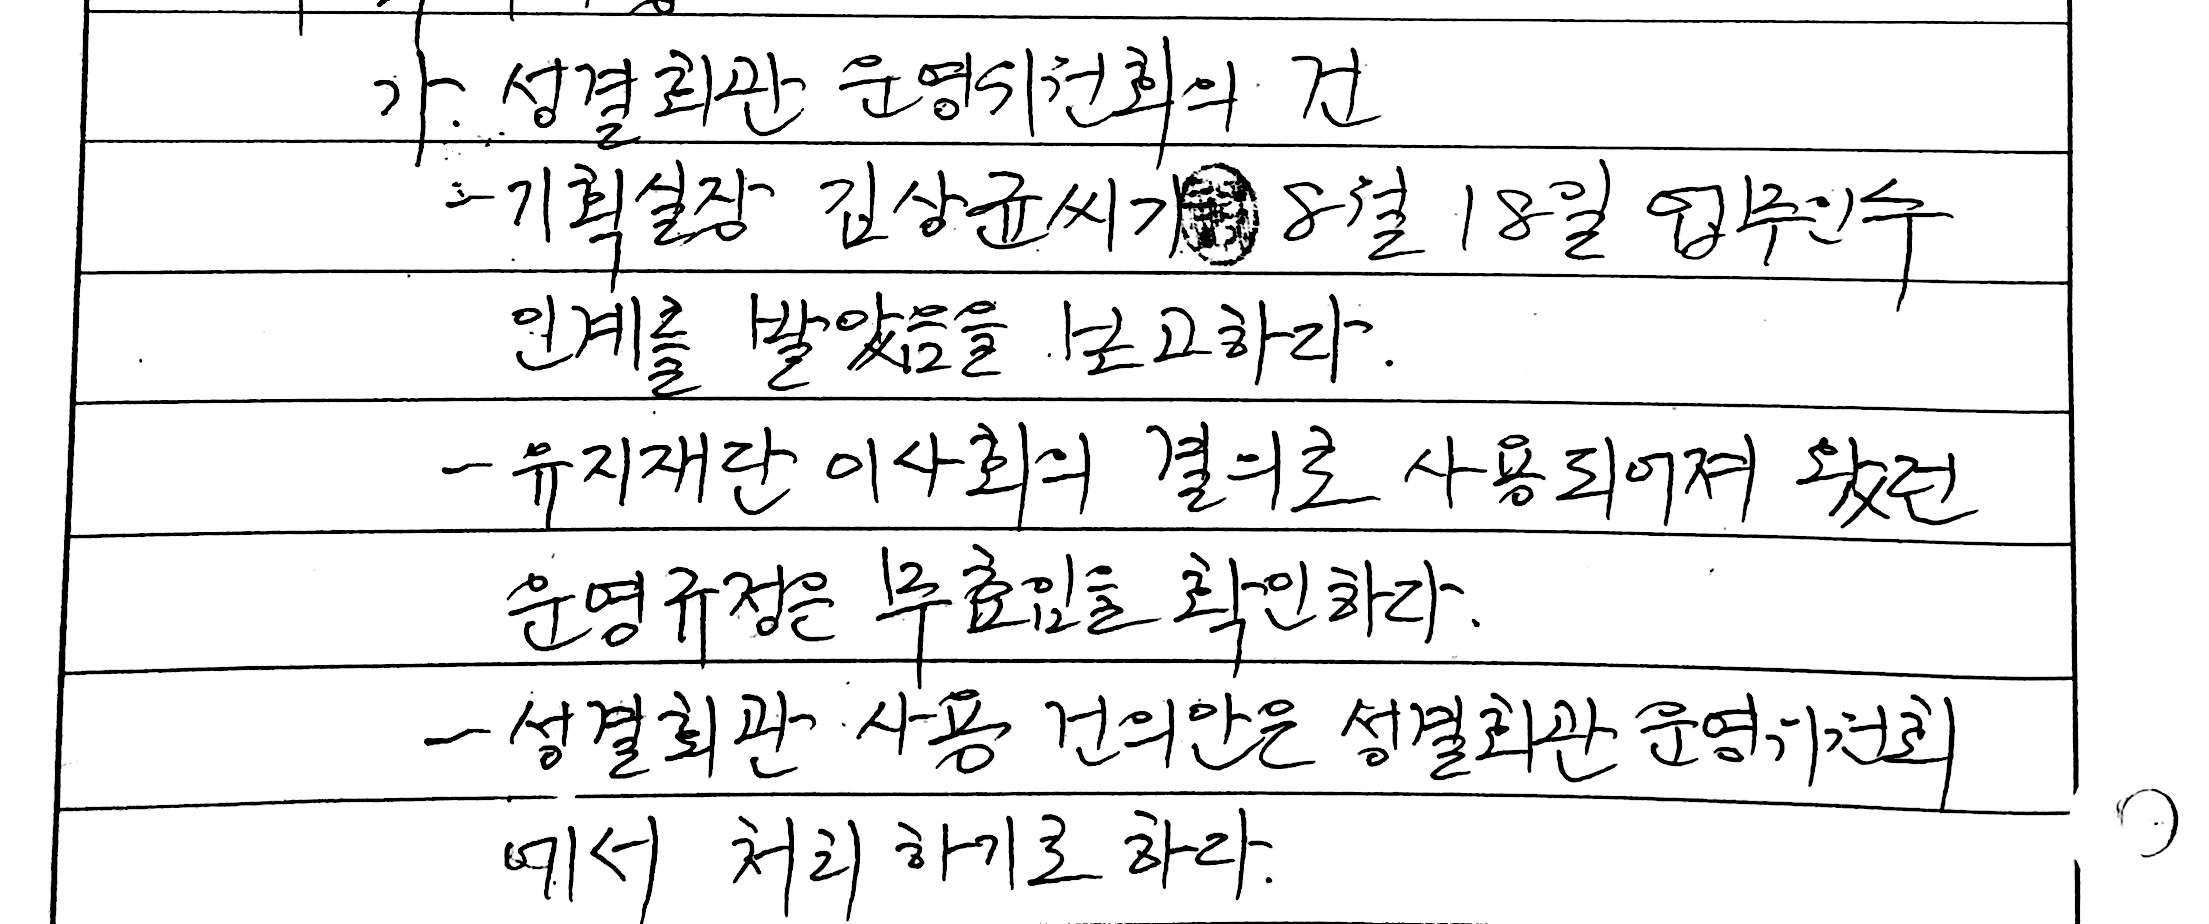 가. 성결회관 운영위원회의 건
- 기획실장 김상균씨가 8월 18일 업무인수
인계를 받았음을 보고하다.
- 유지재단 이사회의 결의로 사용되어져 왔던
운영규정은 무효임을 확인하다.
- 성결회관 사용 건의안은 성결회관 운영위원회
에서 처리하기로 하다.